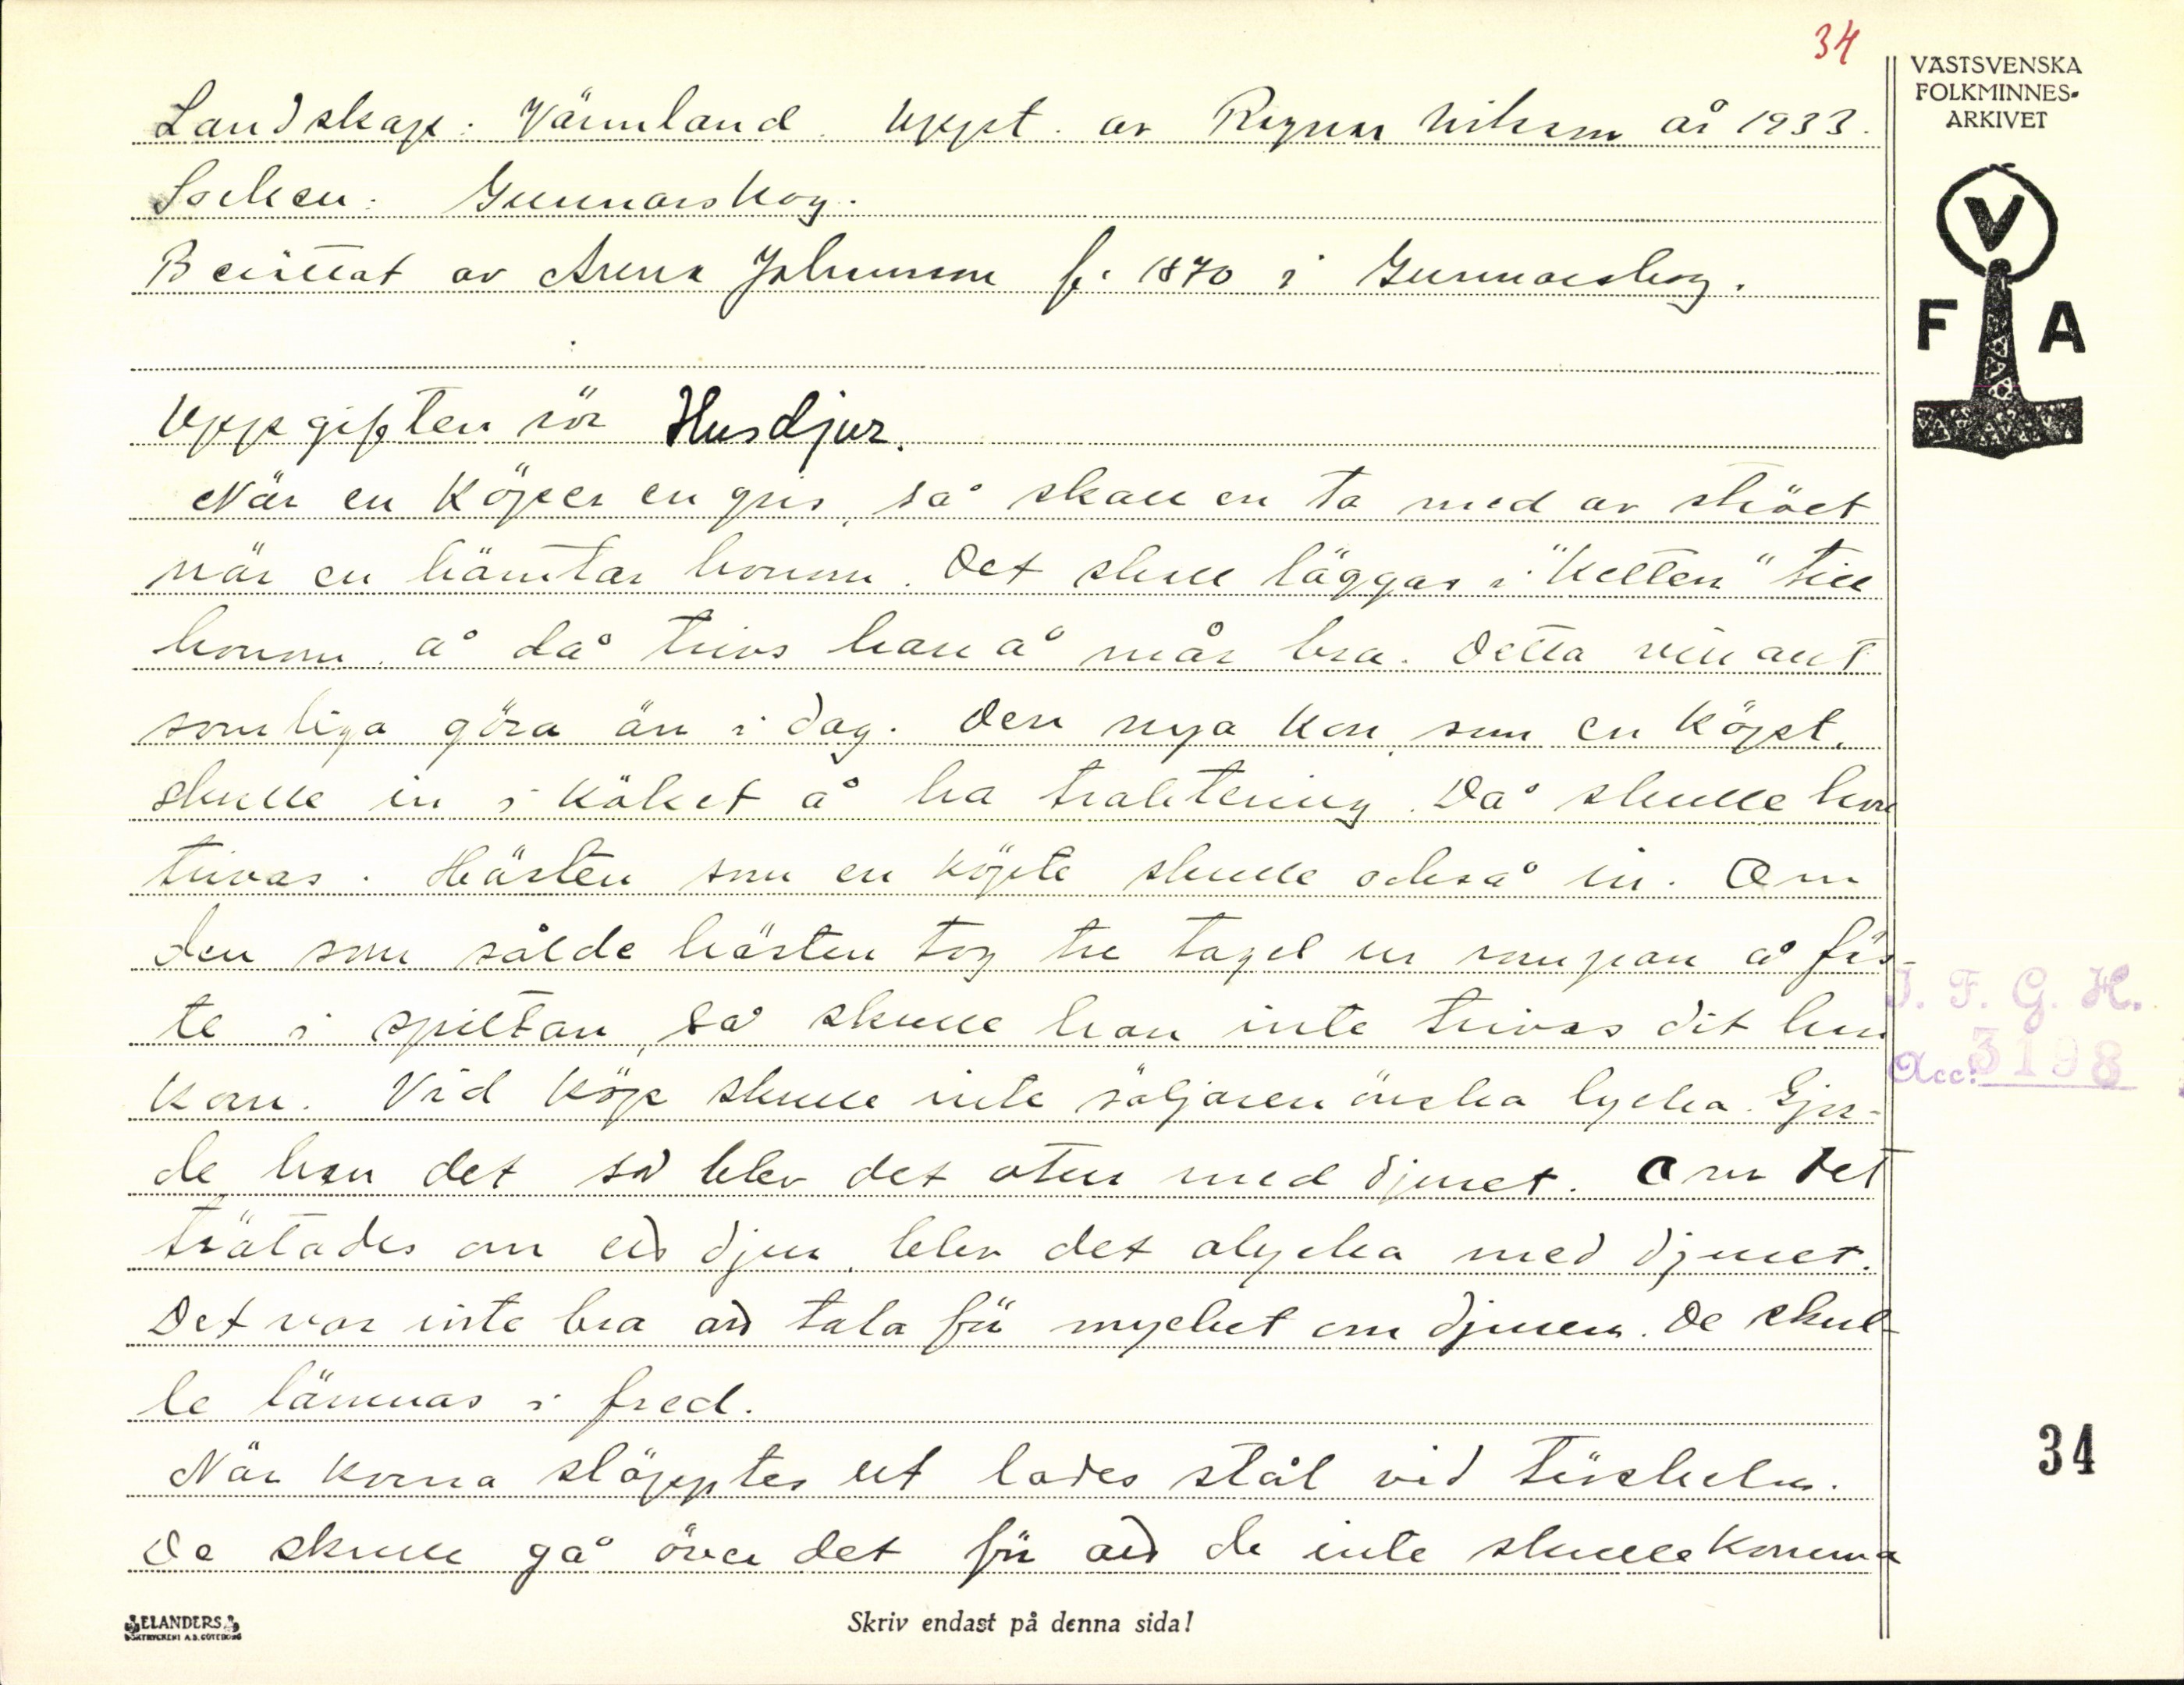 34
VÄSTSVENSKA
FOLKMINNES-
ARKIVET
V
F A
Landskap: Värmland. Uppt. av Ragnar Nilsson år 1933.
Socken: Gunnarskog.
Berättat av Anna Johansson f. 1870 i Gunnarskog.
Uppgiften rör Husdjur.
När en köper en gris, så skall en ta med av ströet
när en hämtar honom. Det skall läggas i "ketten" till
honom å då trivs han å mår bra. Detta vill ant
somliga göra än i dag. Den nya kon, som en köpt,
skulle in i köket å ha traktering. Då skulle hon
trivas. Hästen som en köpte skulle också in. Om
den som sålde hästen tog tre tagel ur rumpan å fäs-
te i spiltan, så skulle han inte trivas dit han
kom. Vid köp skulle inte säljaren önska lycka. Gjor-
de han det så blev det otur med djuret. Om det
trätades om ett djur, blev det olycka med djuret.
Det var inte bra att tala för mycket om djuren. De skul-
le lämnas i fred.
När korna släpptes ut lades stål vid tröskeln.
De skulle gå över det för att de inte skulle komma
I. F. G. H.
Acc. 3198
34
ELANDERS
BOKTRYCKERI A.B. GÖTEBORG
Skriv endast på denna sida!